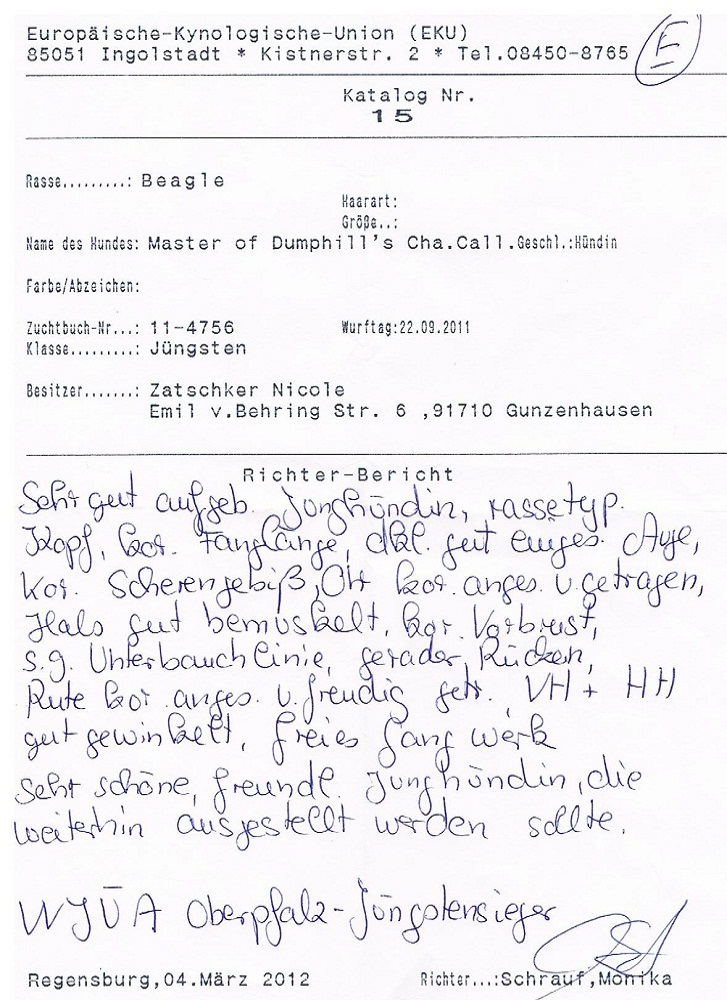 Europäische-Kynologische-Union (EKU)
85051 Ingolstadt * Kistnerstr. 2 * Tel.08450-8765
E
Katalog Nr.
15
Rasse.........: Beagle
Haarart:
Größe..:
Name des Hundes: Master of Dumphill's Cha.Call.Geschl.:Hündin
Farbe/Abzeichen:
Zuchtbuch-Nr...: 11-4756 Wurftag:22.09.2011
Klasse.........: Jüngsten
Besitzer.......: Zatschker Nicole
Emil v.Behring Str. 6 ,91710 Gunzenhausen
Richter-Bericht
Sehr gut aufgeb. Junghündin, rassetyp.
Kopf, kor. Fanglänge, dkl. gut einges. Auge,
kor. Scherengebiß, Ohr kor. anges. u. getragen,
Hals gut bemuskelt, kor. Vorbrust,
s.g. Unterbauchlinie, gerader Rücken,
Rute kor. anges. u. freudig getr., VH + HH
gut gewinkelt, freies Gangwerk
Sehr schöne, freundl. Junghündin, die
weiterhin ausgestellt werden sollte.
WJÜA Oberpfalz-Jüngstensieger
Regensburg,04.März 2012 Richter...:Schrauf,Monika